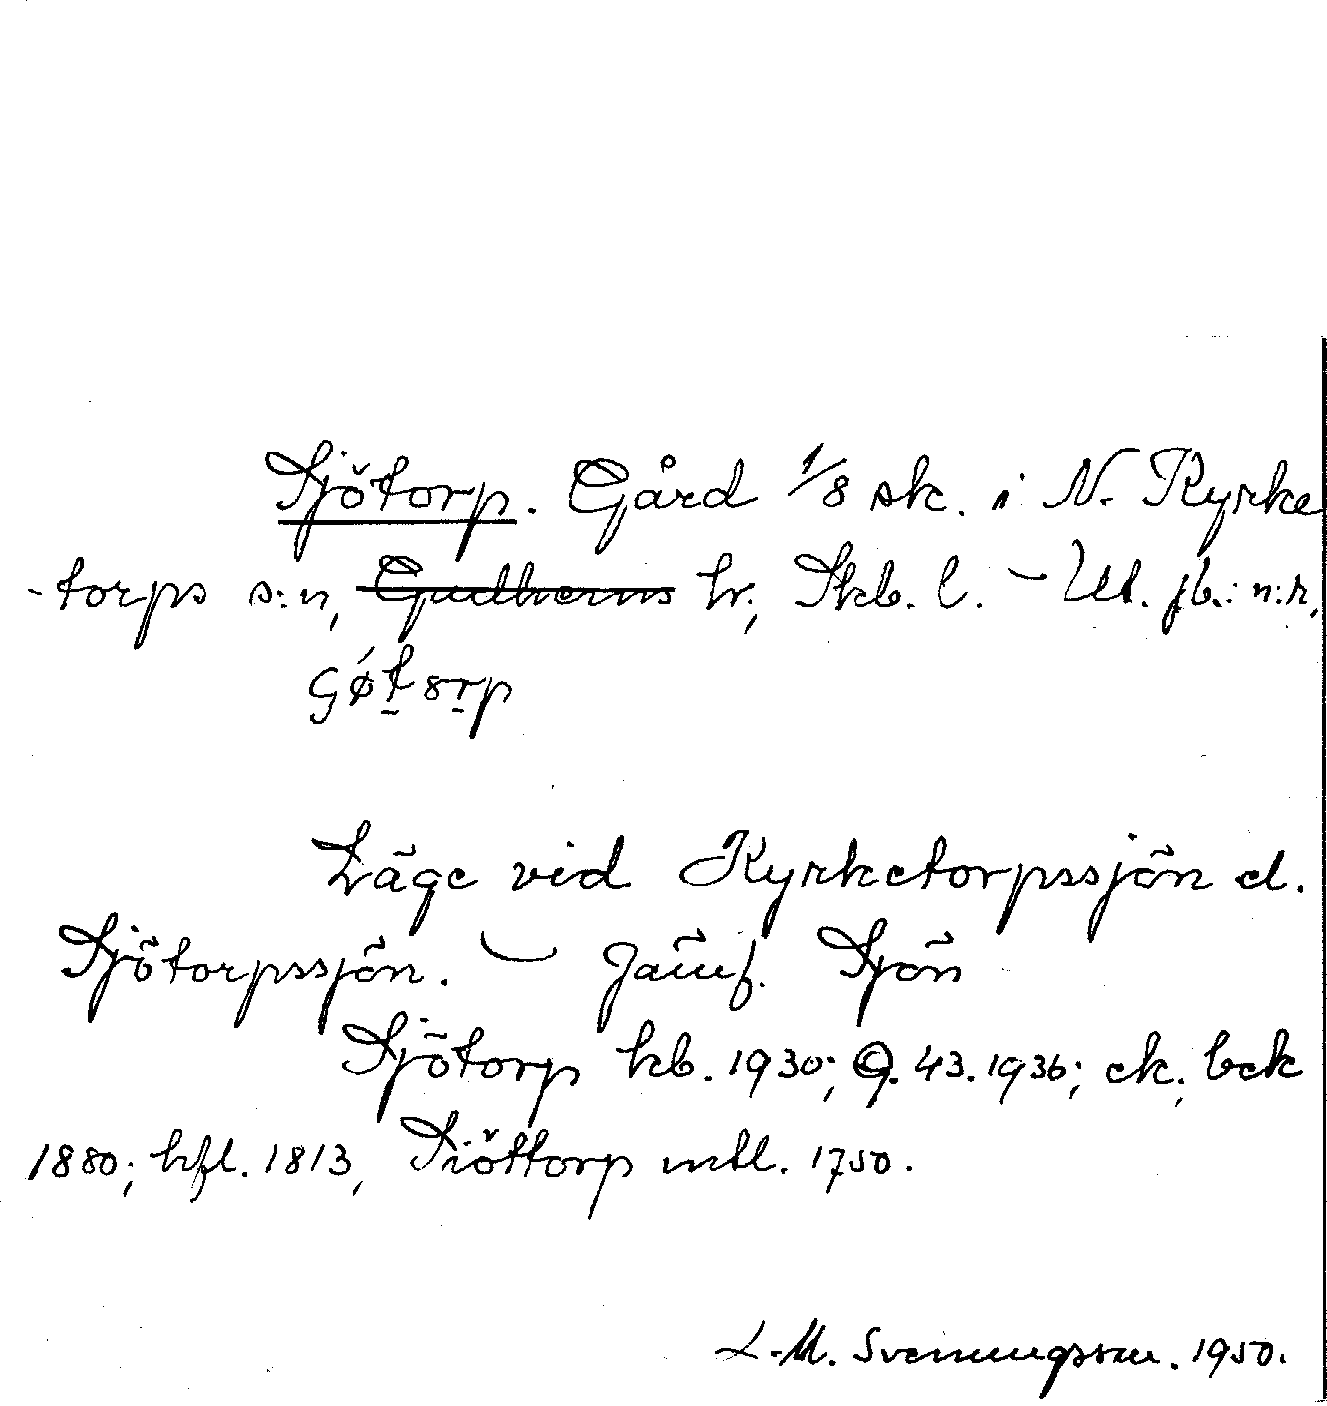 Sjötorp. Gård 1/8 sk. i N. Kyrke
-torps s:n, Gudhems hr, Skb. l. – Ut. jb.: n:r,
Läge vid Kyrketorpssjön el.
Sjötorpssjön. – Jämf. Sjön
Sjötorp kb. 1930; G. 43. 1936; ek. bek
1880; hfl. 1813, Siöttorp mtl. 1750.
L.-M. Svenungsson. 1950.